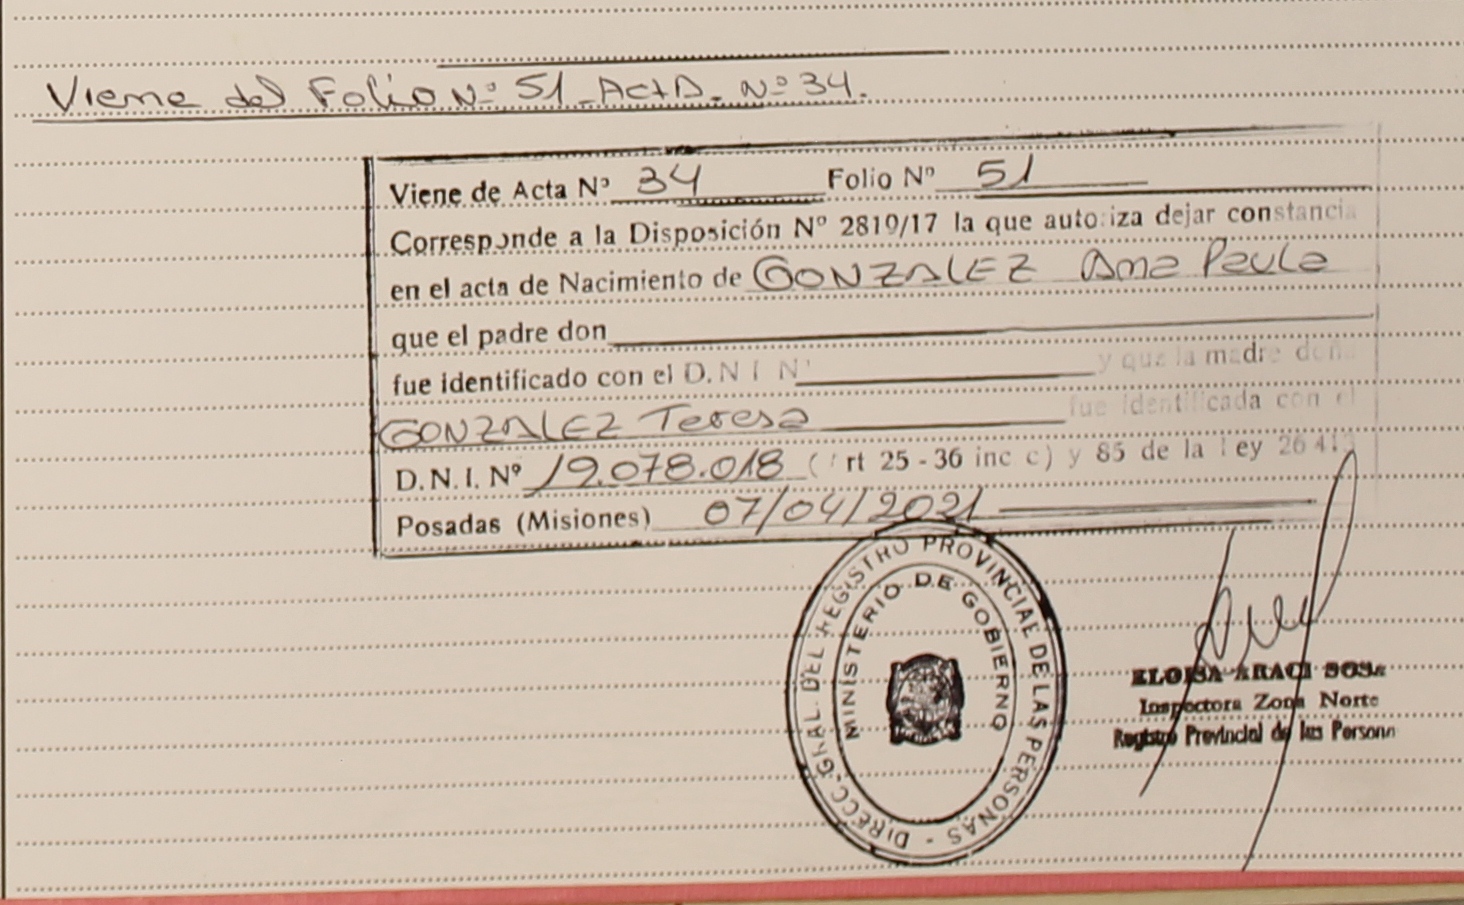 Viene del Folio Nº 51 - Acta - Nº 34.
Viene de Acta Nº 34 Folio Nº 51
Corresponde a la Disposición Nº 2819/17 la que autoriza dejar constancia
en el acta de Nacimiento de GONZALEZ Ana Paula
que el padre don
fue identificado con el D.N.I Nº y que la madre doña
GONZALEZ Teresa fue identificada con el
D.N.I. Nº 19.078.018 (Art 25 - 36 inc c) y 85 de la Ley 26413
Posadas (Misiones) 07/04/2021
DIRECC. GRAL. DEL REGISTRO PROVINCIAL DE LAS PERSONAS -
MINISTERIO DE GOBIERNO
ELOISA ARACI SOSA
Inspectora Zona Norte
Registro Provincial de las Personas